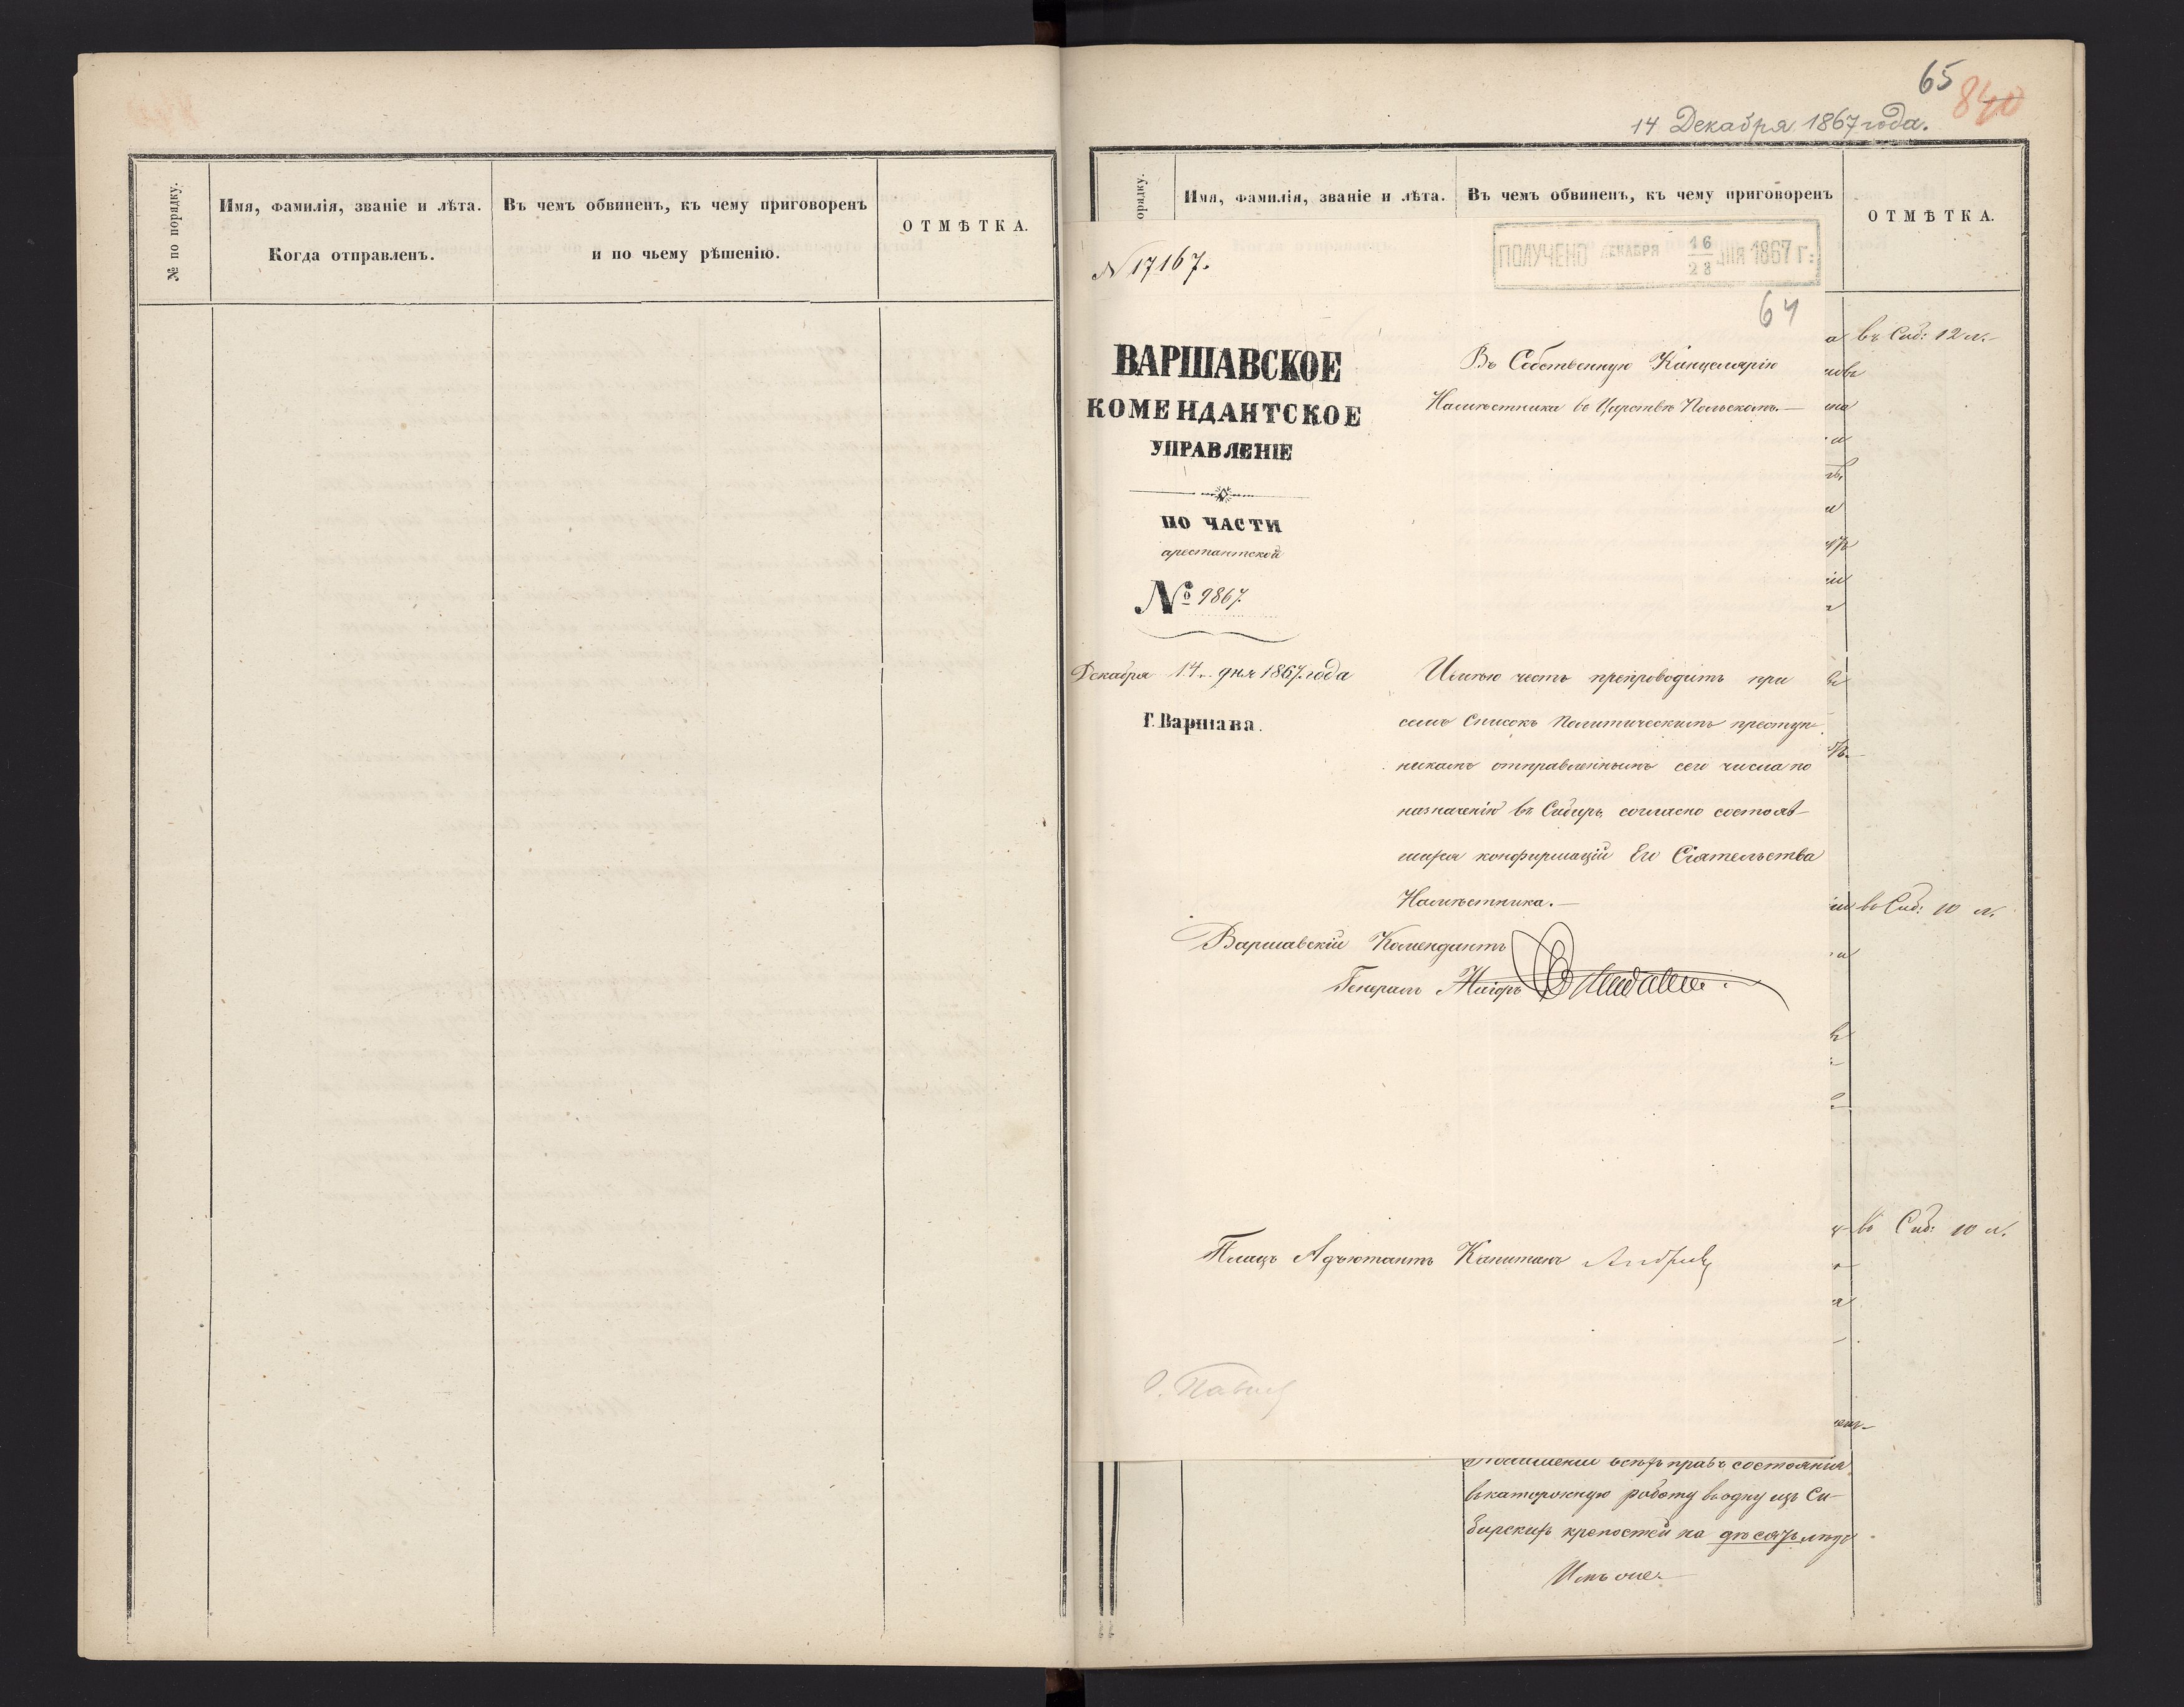 № по порядку.
Имя, фамилія, званіе и лѣта.
Когда отправленъ.
Въ чемъ обвиненъ, къ чему приговоренъ
и по чьему рѣшенію.
ОТМѢТКА.
65
840
14 Декабря 1867 года.
Имя, фамилія, званіе и лѣта.
Въ чемъ обвиненъ, къ чему приговоренъ
ОТМѢТКА.
N 17167.
ПОЛУЧЕНО ДЕКАБРЯ 16/28 ДНЯ 1867 Г.
64
ВАРШАВСКОЕ
КОМЕНДАНТСКОЕ
УПРАВЛЕНІЕ
ПО ЧАСТИ
арестантской
№ 9867.
Декабря 14 дня 1867 года
Г. Варшава.
Въ Собственную Канцелярію
Намѣстника въ Царствѣ Польскомъ.—
Имѣю честь препроводить при
семъ списокъ Политическимъ преступ-
никамъ отправленнымъ сего числа по
назначенію въ Сибирь, согласно состояв-
шихся конфирмацій Его Сіятельства
Намѣстника.—
Варшавскій Комендантъ
Генералъ Маіоръ
Плацъ Адъютантъ Капитанъ
въ Сиб: 12 л.
въ Сиб: 10 л.
въ Сиб: 10 л.
всѣхъ правъ состоянія
въ каторжную работу въ одну изъ Си-
бирскихъ крепостей на десять лѣтъ